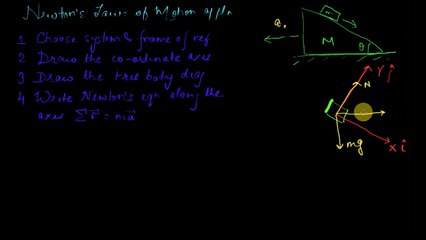 Newton's Laws of Motion appln
1 Choose system & frame of ref
2 Draw the co-ordinate axes
3 Draw the free body diag
4 Write Newton's eqn along the
axes Σ F⃗ = ma⃗
a₀
m
M
θ
Y ĵ
N
mg
X î